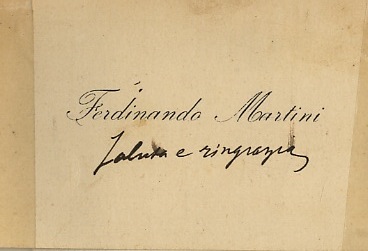 Ferdinando Martini
saluta e ringrazia